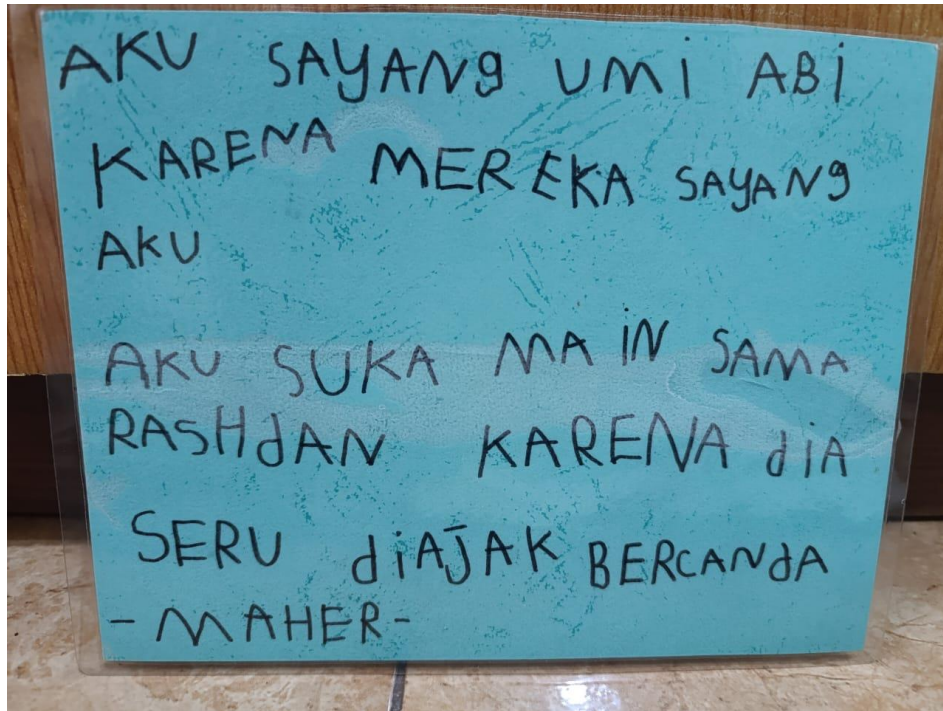 AKU SAYANg UMi ABi
KARENA MEREKA SAYANg
AKU
AKU SUKA MAiN SAMA
RASHdAN KARENA diA
SERU diAJAK BERCANdA
-MAHER-